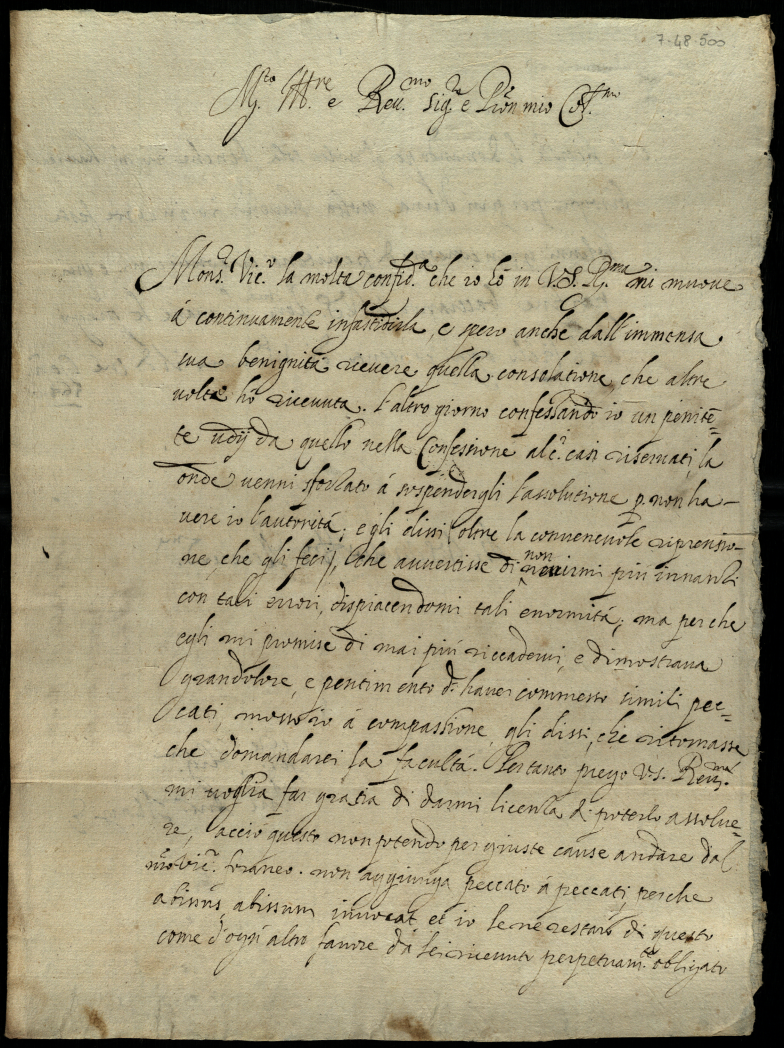 7-48-500
M.to Ill.re e Rev.mo Sig.re e P̃ron mio Col.mo
Mons.r Vic.o la molta confid.a che io hò in V.S. R.ma mi muove
á continuamente infastidirla, e spero anche dall'immensa
sua benignitá ricevere quella consolatione che altre
volte hò ricevuta. L'altro giorno confessando io un penitẽ=
te udij da quello nella Confessione alc.i casi riservati, la
onde venni sforzato á sospendergli l'assolutione p. non ha-
vere io l'autoritá; e gli dissi (oltre la convenevole riprensio-
ne, che gli feci), che avvertisse di non venirmi più innanzi
con tali errori, dispiacendomi tali enormitá; ma perche
egli mi promise di mai più riccadervi, e dimostrava
gran dolore, e pentimento d'haver commesso simili pec=
cati, mosso io á compassione, gli dissi, che ritornasse
che domandarei la facultá. Pertanto prego V.S. Rev.ma
mi voglia far gratia di darmi licenza di poterlo assolve=
re, acciò questo non potendo per giuste cause andare dal
n̄ro Vic.o foraneo. non aggiunga peccato á peccati, perche
abissus abissum invocat et io le ne restarò di questo
come d'ogni altro favore dá lei ricevuto perpetuam.te obligato